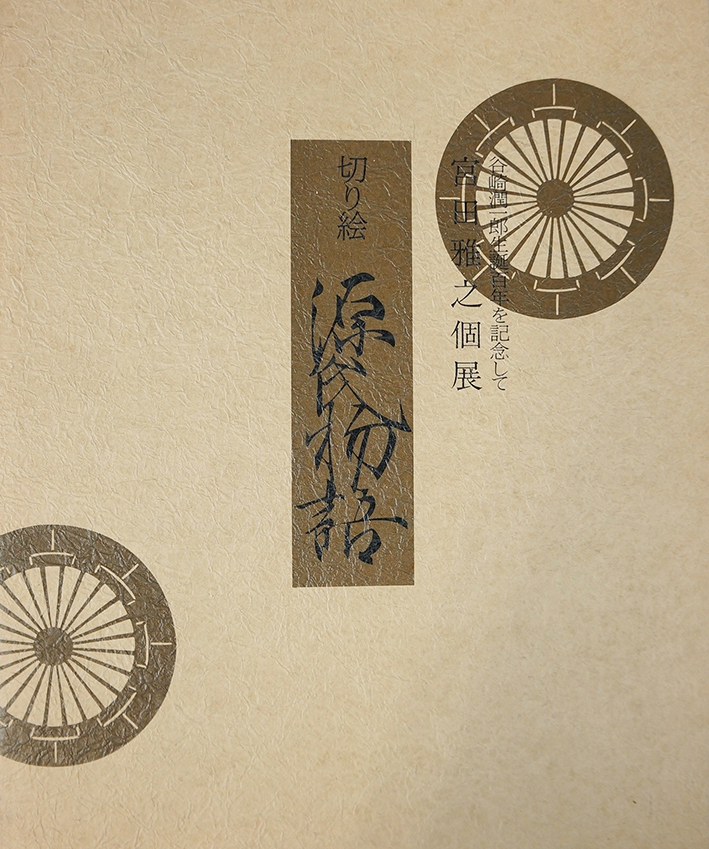 谷崎潤一郎生誕百年を記念して
宮田雅之個展
切り絵
源氏物語